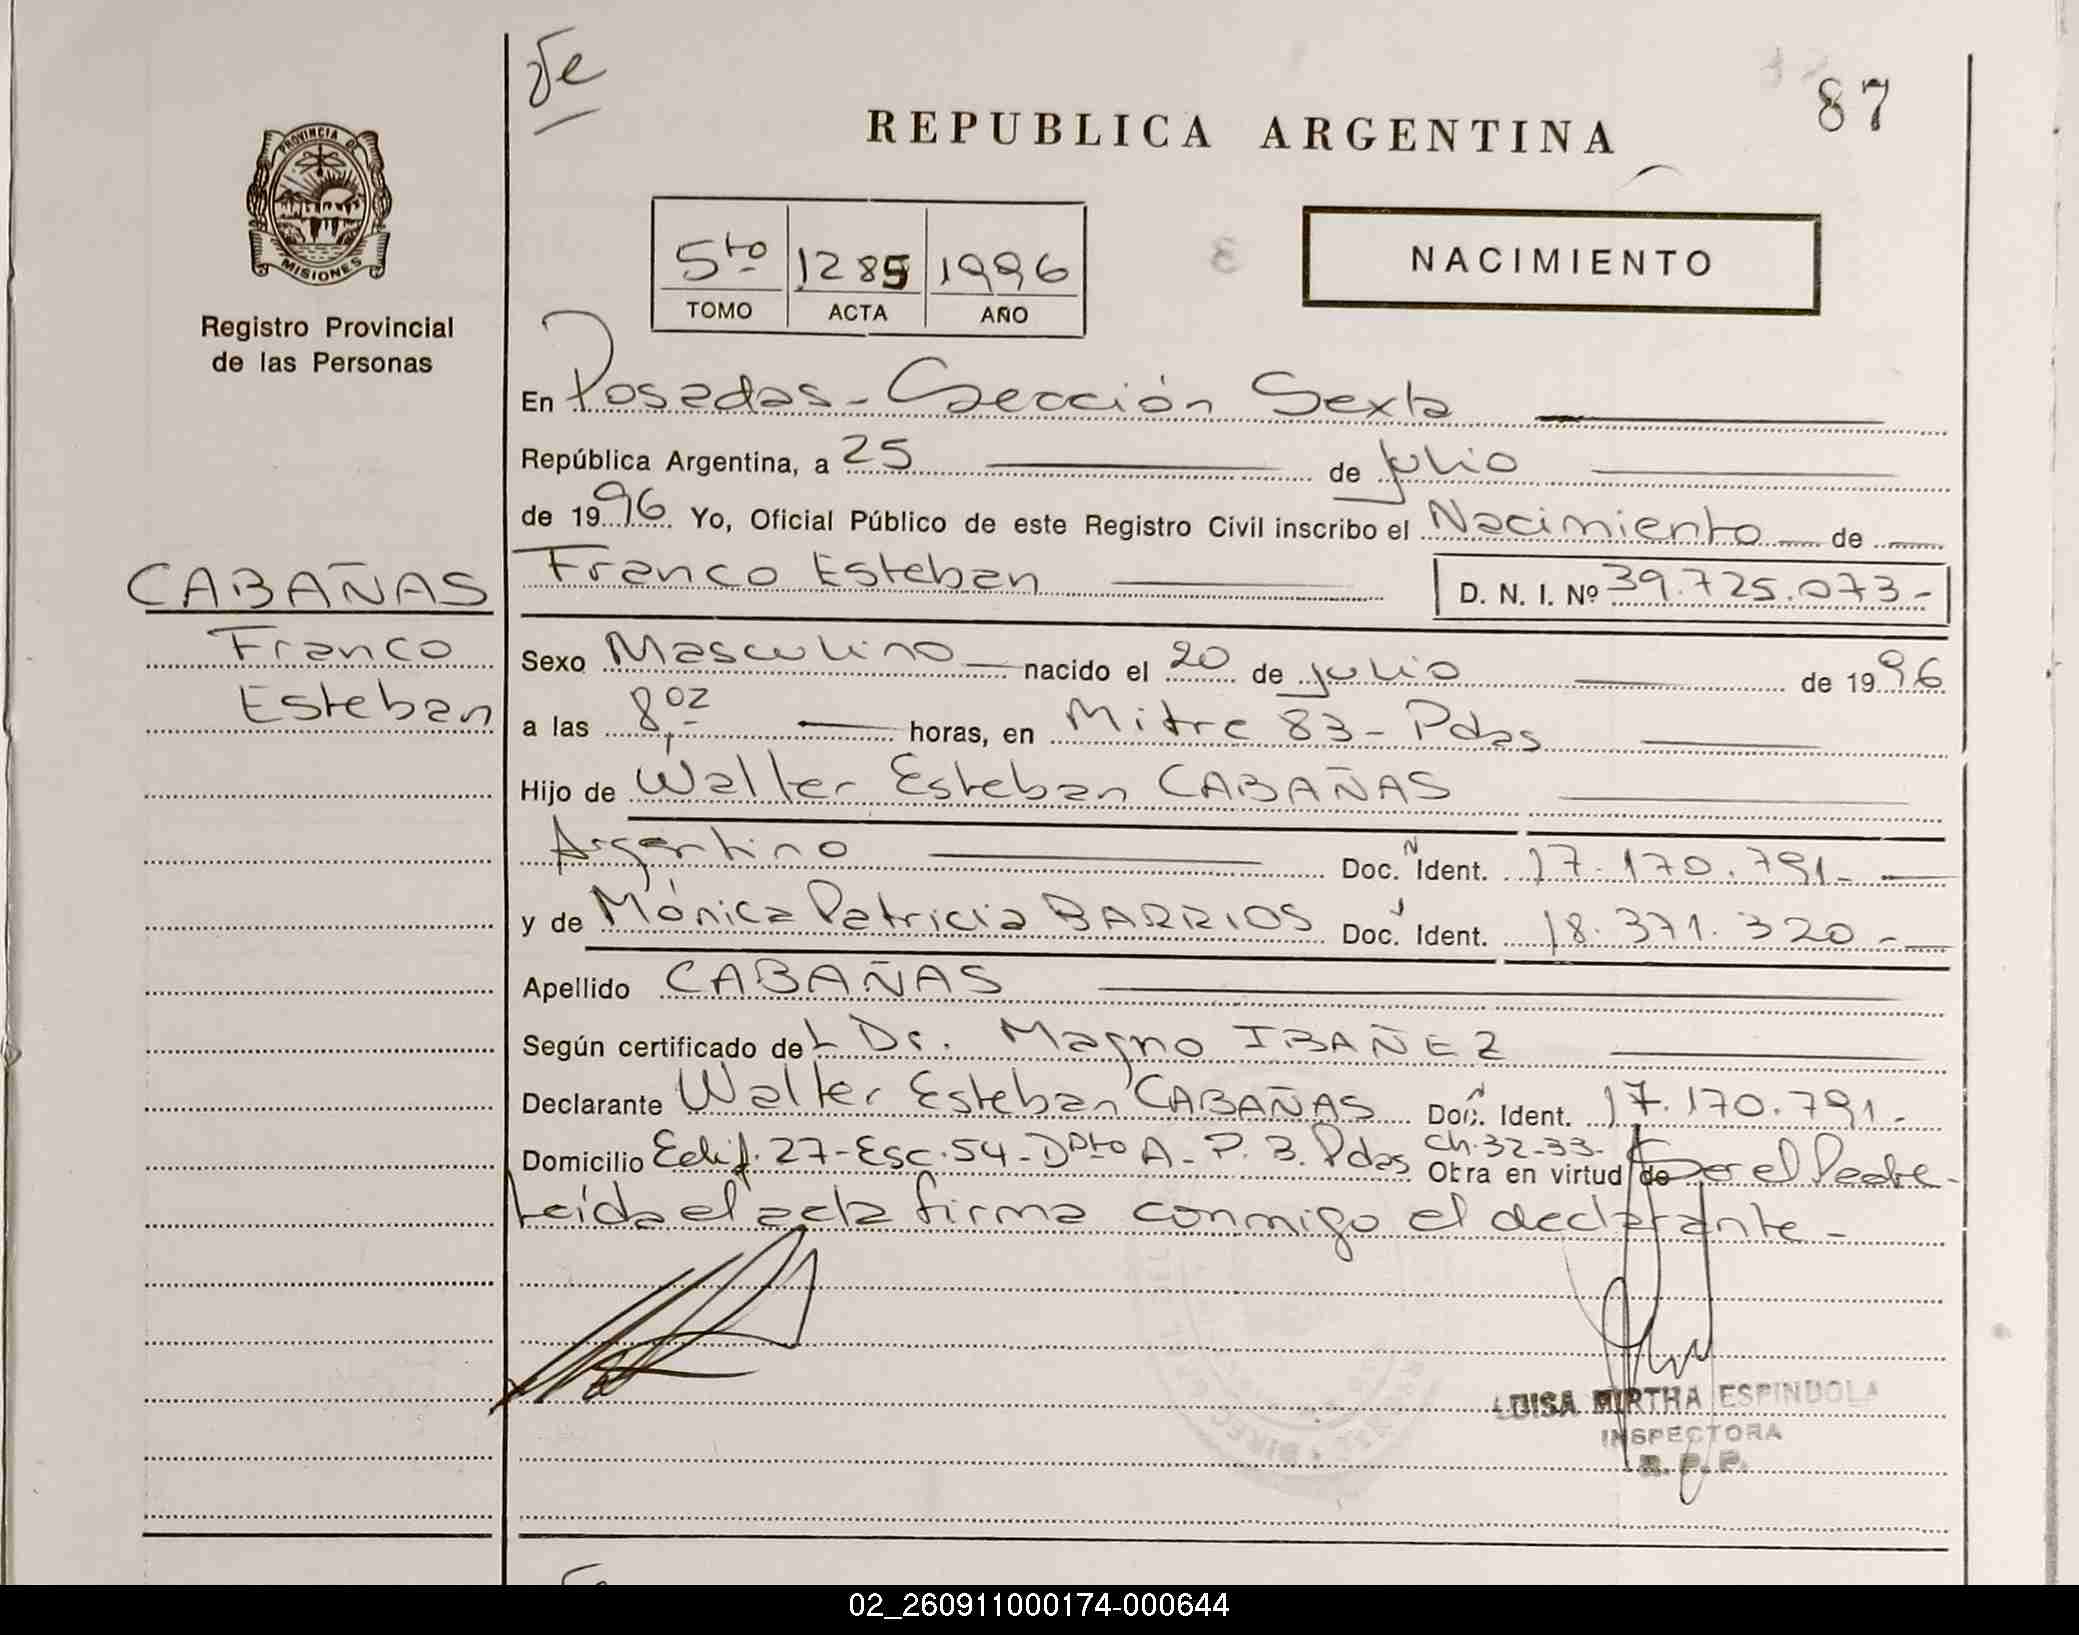 De
87
REPUBLICA ARGENTINA
PROVINCIA DE MISIONES
5to 1285 1996
TOMO ACTA AÑO
NACIMIENTO
Registro Provincial
de las Personas
En Posadas - Sección Sexta
República Argentina, a 25 de Julio
de 1996 Yo, Oficial Público de este Registro Civil inscribo el Nacimiento de
CABAÑAS
Franco
Esteban
Franco Esteban D. N. I. Nº 39.725.073-
Sexo Masculino nacido el 20 de Julio de 1996
a las 8,02 horas, en Mitre 83 - Pdas
Hijo de Walter Esteban CABAÑAS
Argentino Doc. N Ident. 17.170.791-
y de Mónica Patricia BARRIOS Doc. Ident. 18.371.320-
Apellido CABAÑAS
Según certificado del Dr. Magno IBAÑEZ
Declarante Walter Esteban CABAÑAS Doc. N Ident. 17.170.791-
Domicilio Edif. 27-Esc.54-Dpto A- P. B. Pdas Ch.32-33- Obra en virtud de Ser el Padre-
Leída el acta firma conmigo el declarante-
LUISA MIRTHA ESPINDOLA
INSPECTORA
R. P. P.
02_260911000174-000644